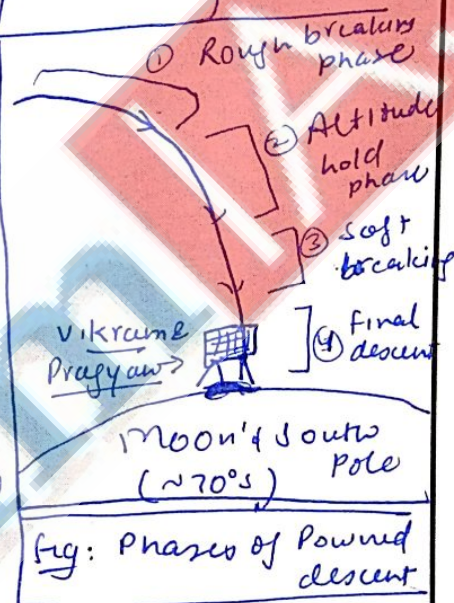 ① Rough breaking
phase
② Altitude
hold
phase
③ soft
breaking
④ final
descent
Vikram &
Pragyan →
Moon's South
Pole
(~70°S)
fig: Phases of Powred
descent